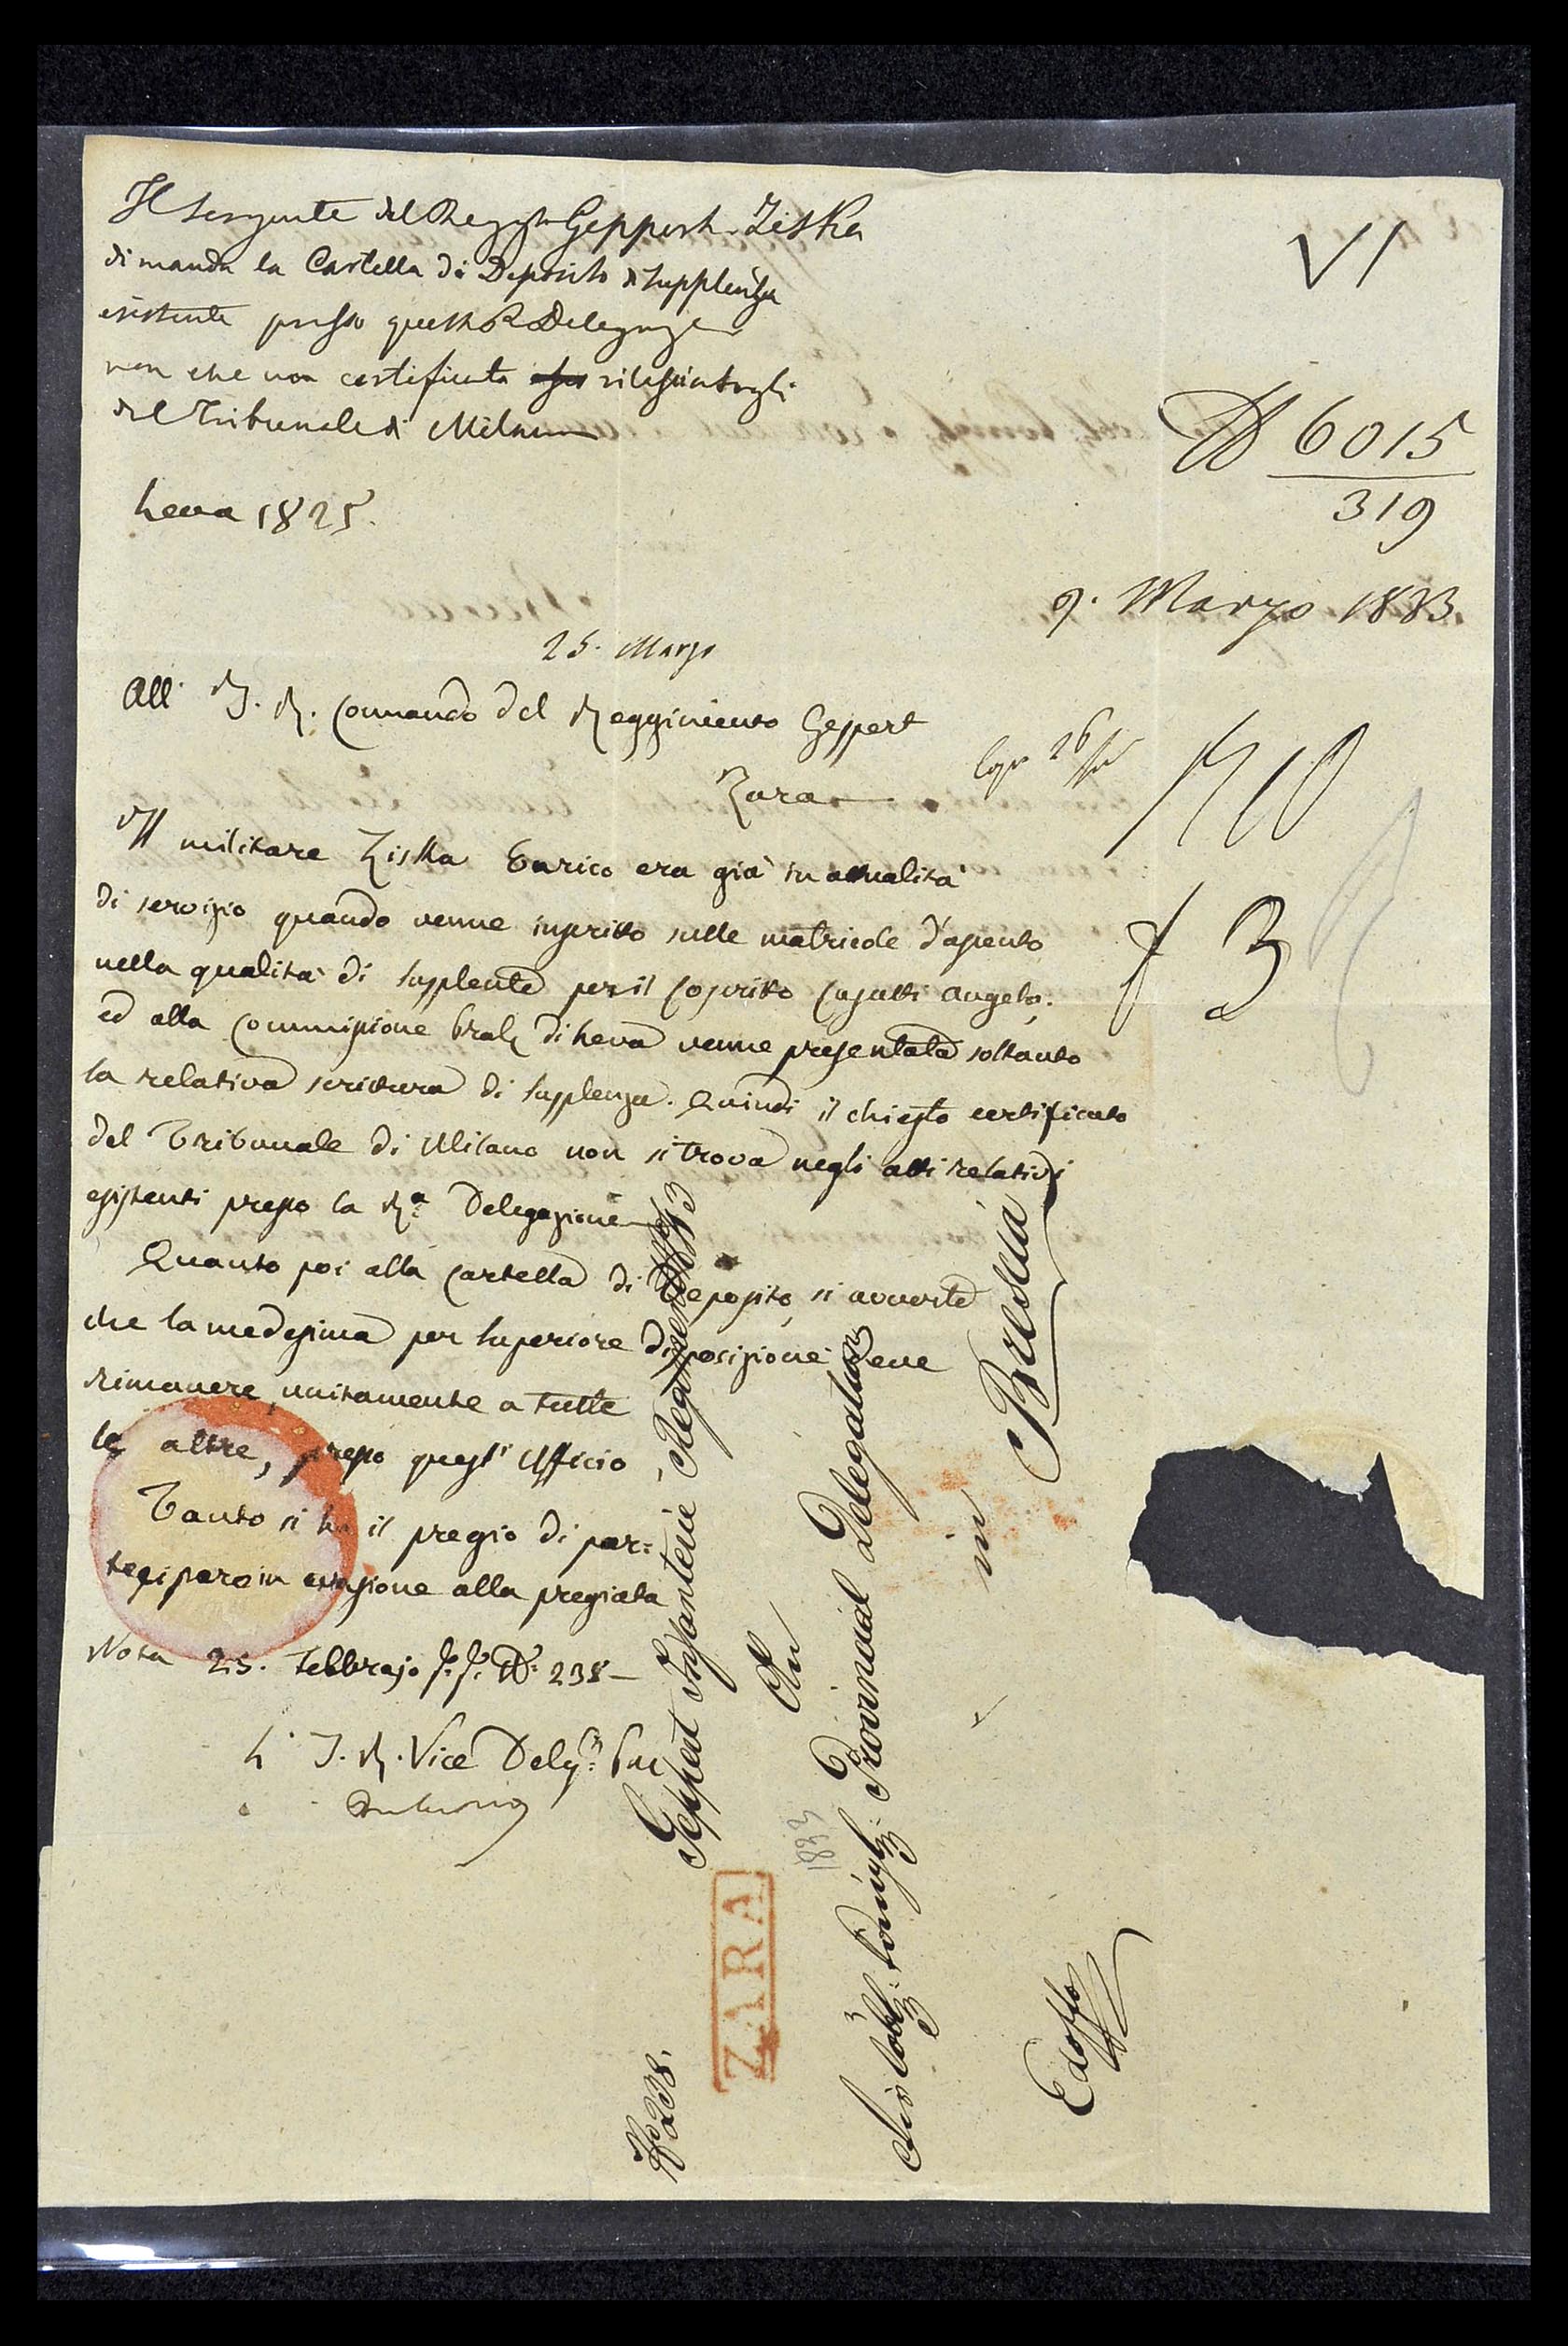 Il Sergente del Reggto Geppert Ziska
dimanda la Cartella di Deposito di Supplenza
esistente presso questa R Delegaze
non che un certificato rilasciatogli
del Tribunale di Milano
Leva 1825.
VI
N 6015
319
9. Marzo 1833.
25. Marzo
All' I. R. Comando del Reggimento Geppert
Zara
26
Il militare Ziska Enrico era già in attualità
di servizio quando venne inscritto sulle matricole d'assento
nella qualità di supplente per il coscritto Casatti Angelo;
ed alla Commissione di Leva venne presentata soltanto
la relativa scrittura di supplenza. Quindi il chiesto certificato
del Tribunale di Milano non si trova negli atti relativi
esistenti presso la Ra. Delegazione
Quanto poi alla cartella di Deposito, si avverte
che la medesima per superiore disposizione deve
rimanere, unitamente a tutte
le altre, presso quest' Ufficio
Tanto si ha il pregio di par=
tecipare in evasione alla pregiata
Nota 25. Febbrajo N. 238 —
L' I. R. Vice Delego.
f 3
No 238.
Geppert Infanterie Regiment No 43
ZARA
An
1833
Löbl: königl: Provincial Delegation
in
Brescia